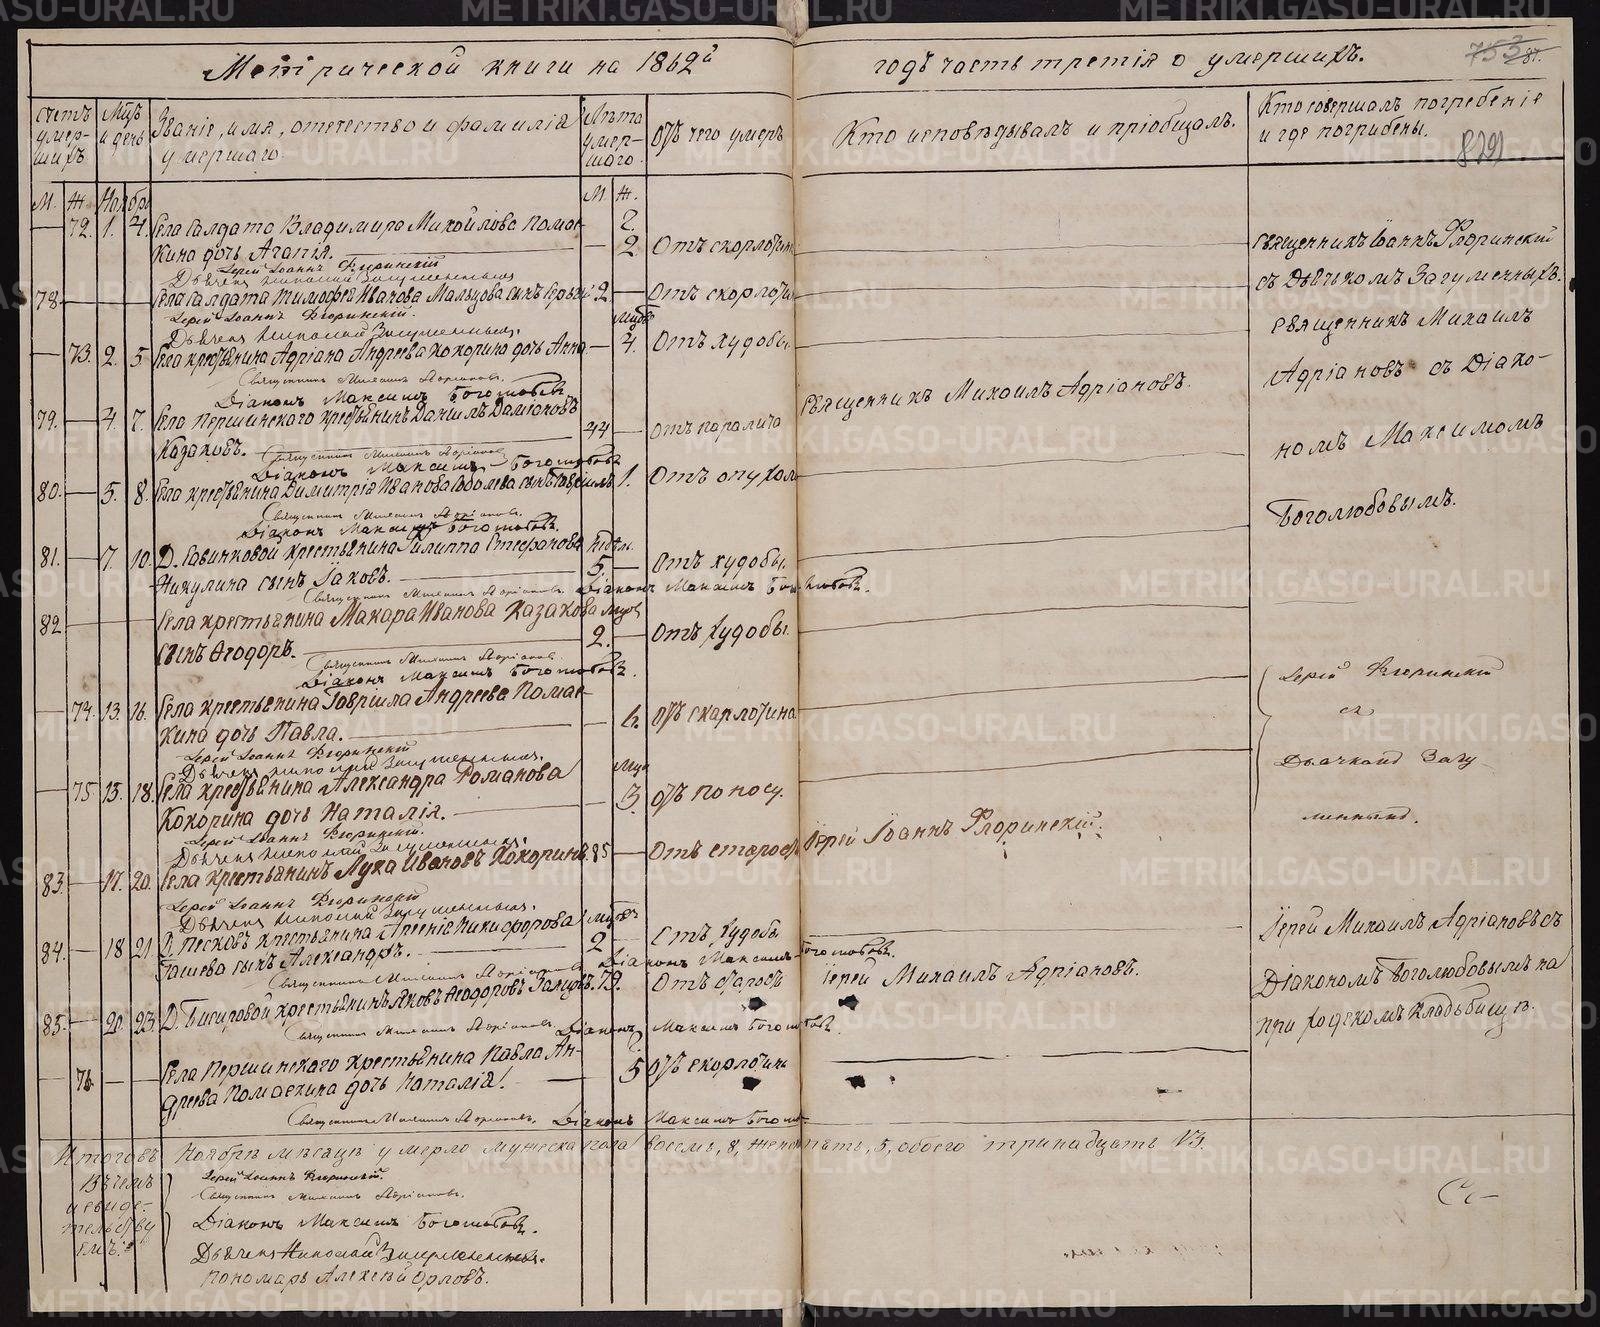 Метрической книги на 1862й годъ часть третія о умершихъ.
753
87.
Счетъ умер-шихъ
Мцъ и день
Званіе, имя, отечество и фамилія умершаго.
Лѣта умер-шаго.
Отъ чего умеръ
Кто исповѣдывалъ и пріобщалъ.
Кто совершалъ погребеніе и где погрибены.
М. Ж. Ноябрь М. Ж.
72. 1. 4. Села Салдата Владимира Михайлова Помас-
кина дочь Агапія. — 2 Отъ скорлотин
Іерей Іоаннъ Флоринскій
Дьячекъ Николай Загуменныхъ
78 Села Салдата Тимофея Иванова Мальцова сынъ 2 — Отъ скорлотин
Іерей Іоаннъ Флоринскій.
Дьячекъ Николай Загуменныхъ.
73. 2. 5 Села крестьянина Адріана Андреева Кокорина дочь Анна — 4. Отъ худобы.
Священникъ Михаилъ Адріановъ.
Діаконъ Максимъ Боголюбовъ
79. — 4. 7. Села Першинского крестьянинъ Даніилъ Даміановъ
Казаковъ. 44 — Отъ паралича Священникъ Михаилъ Адріановъ.
Священникъ Михаилъ Адріановъ
Діаконъ Максимъ Боголюбовъ
80. — 5. 8. Села крестьянина Димитрія Иванова Соболева сынъ Гавріилъ 1. Отъ опухол
Священникъ Михаилъ Адріановъ.
Діаконъ Максимъ Боголюбовъ.
81. — 7. 10. Д. Савинковой крестьянина Филиппа Стефанова
Никулина сынъ Іаковъ. 5 — Отъ худобы.
Священникъ Михаилъ Адріановъ. Діаконъ Максимъ Боголюбовъ.
82 Села крестьянина Макара Иванова Казакова
сынъ Ѳеодоръ. 2. — Отъ худобы.
Священникъ Михаилъ Адріановъ.
Діаконъ Максимъ Боголюбовъ.
74. 13. 16. Села крестьянина Гавріила Андреева Помас-
кина дочь Павла. — Отъ скарлотина
Іерей Іоаннъ Флоринскій
Дьячекъ Николай Загуменныхъ.
75 13. 18. Села крестьянина Александра Романова
Кокорина дочь Наталія. — 3 Отъ поносу.
Іерей Іоаннъ Флоринскій.
Дьячекъ Николай Загуменныхъ.
83. — 17. 20. Села крестьянинъ Лука Ивановъ Кокоринъ. 85 — Отъ старос Іерей Іоаннъ Флоринскій.
Іерей Іоаннъ Флоринскій
Дьячекъ Николай Загуменныхъ.
84. — 18 21. Д. Песковъ крестьянина Арсенія Никифорова
сынъ Александръ. — 2 — Отъ худобы
Священникъ Михаилъ Адріановъ Діаконъ Максимъ Боголюбовъ.
85. — 20. 23. Д. Бигировой крестьянинъ Яковъ Ѳеодоровъ 79. Отъ старос Іерей Михаилъ Адріановъ.
Священникъ Михаилъ Адріановъ Діаконъ Максимъ Боголюбовъ.
76. — — Села Першинского крестьянина Павла Ан-
дреева Помаскина дочь Наталія. — 5 Отъ скорлотины
Священникъ Михаилъ Адріановъ. Діаконъ Максимъ Боголюб
Священникъ Іоаннъ Флоринскій
съ Дьячкомъ Загуменныхъ.
Священникъ Михаилъ
Адріановъ съ Діако-
номъ Максимомъ
Боголюбовымъ.
Іерей Флоринскій
съ
Дьячкомъ Загу-
меннымъ.
Іерей Михаилъ Адріановъ съ
Діакономъ Боголюбовымъ на
приходскомъ кладьбищѣ.
Итого въ Ноябрѣ мѣсяцѣ умерло мужеска пола восемь, 8, женс пять, 5, обоего тринадцать 13.
Въ чемъ и свиде-тельству емъ:
Іерей Іоаннъ Флоринскій.
Священникъ Михаилъ Адріановъ.
Діаконъ Максимъ Боголюбовъ.
Дьячекъ Николай Загуменныхъ.
Пономарь Алексѣй Орловъ.
METRIKI.GASO-URAL.RU